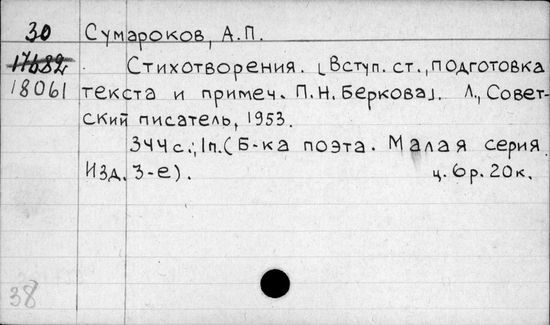 30 Сумароков, А.П.
17682 Стихотворения. [Вступ. ст., подготовка
18061 текста и примеч. П.Н. Беркова]. Л., Совет-
ский писатель, 1953.
344 с.; 1п. (Б-ка поэта. Малая серия.
Изд. 3-е). ц. 6р. 20к.
38